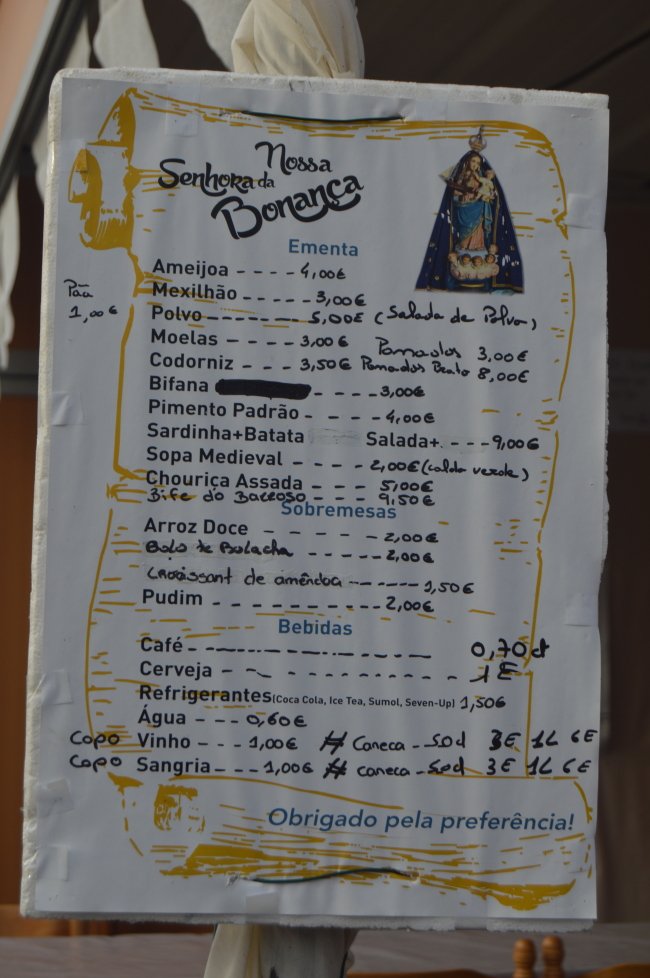 Nossa
Senhora da
Bonança
Ementa
Ameijoa - - - - 4,00€
Pão
1,00€
Mexilhão - - - - - 3,00€
Polvo - - - - - - - - 5,00€ (Salada de Polvo)
Moelas - - - - 3,00€ Panados 3,00€
Codorniz - - - 3,50€ Panados Prato 8,00€
Bifana - - - - 3,00€
Pimento Padrão - - - - 4,00€
Sardinha+Batata Salada+ - - - 9,00€
Sopa Medieval - - - - 2,00€ (caldo verde)
Chouriça Assada - - - 5,00€
Bife do Barroso - - - 9,50€
Sobremesas
Arroz Doce - - - - - 2,00€
Bolo de Bolacha - - - - - 2,00€
Croissant de amêndoa - - - - - - 1,50€
Pudim - - - - - - - - - - 2,00€
Bebidas
Café - - - - - - - - - - - 0,70ct
Cerveja - - - - - - - - - - 1€
Refrigerantes (Coca Cola, Ice Tea, Sumol, Seven-Up) 1,50€
Água - - - 0,60€
Copo Vinho - - - 1,00€ # Caneca - 50cl 3€ 1L 6€
Copo Sangria - - - 1,00€ # Caneca - 50cl 3€ 1L 6€
Obrigado pela preferência!